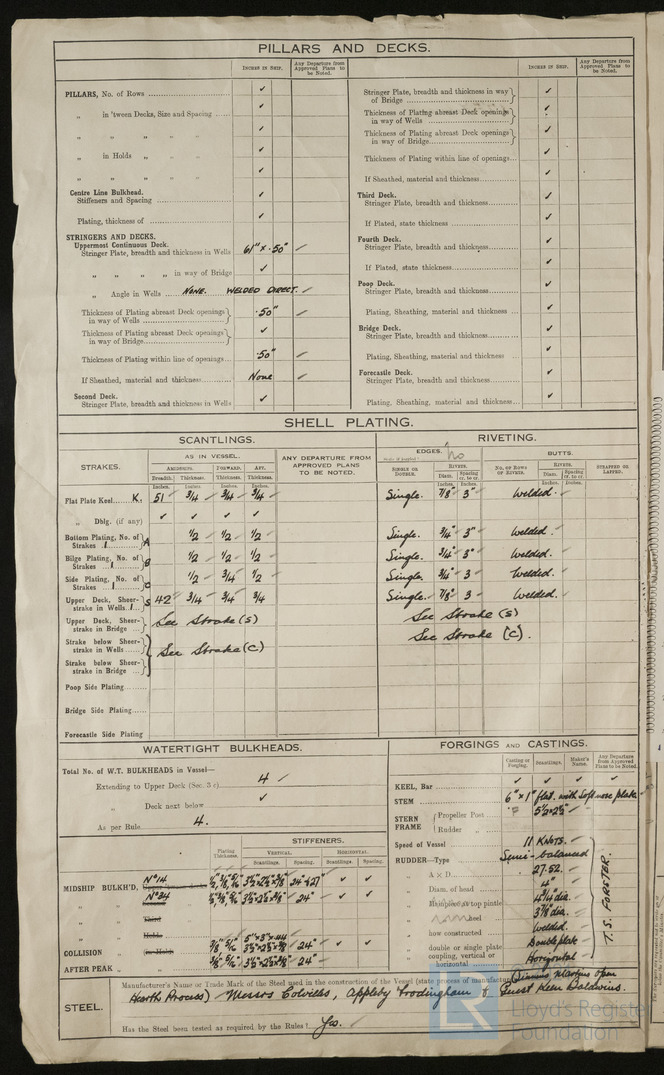 PILLARS AND DECKS.
Inches in Ship.
Any Departure from Approved Plans to be Noted.
PILLARS, No. of Rows ✓
„ in 'tween Decks, Size and Spacing ✓
„ „ „ „ ✓
„ in Holds „ „ ✓
„ „ „ „ ✓
Centre Line Bulkhead.
Stiffeners and Spacing ✓
Plating, thickness of ✓
STRINGERS AND DECKS.
Uppermost Continuous Deck.
Stringer Plate, breadth and thickness in Wells 61" x .50" ✓
„ „ „ „ in way of Bridge ✓
„ Angle in Wells NONE. WELDED DIRECT. ✓
Thickness of Plating abreast Deck openings in way of Wells .50" ✓
Thickness of Plating abreast Deck openings in way of Bridge ✓
Thickness of Plating within line of openings .50" ✓
If Sheathed, material and thickness None ✓
Second Deck.
Stringer Plate, breadth and thickness in Wells ✓
Inches in Ship.
Any Departure from Approved Plans to be Noted.
Stringer Plate, breadth and thickness in way of Bridge ✓
Thickness of Plating abreast Deck openings in way of Wells ✓
Thickness of Plating abreast Deck openings in way of Bridge ✓
Thickness of Plating within line of openings ✓
If Sheathed, material and thickness ✓
Third Deck.
Stringer Plate, breadth and thickness ✓
If Plated, state thickness ✓
Fourth Deck.
Stringer Plate, breadth and thickness ✓
If Plated, state thickness ✓
Poop Deck.
Stringer Plate, breadth and thickness ✓
Plating, Sheathing, material and thickness ✓
Bridge Deck.
Stringer Plate, breadth and thickness ✓
Plating, Sheathing, material and thickness ✓
Forecastle Deck.
Stringer Plate, breadth and thickness ✓
Plating, Sheathing, material and thickness ✓
SHELL PLATING.
SCANTLINGS.
RIVETING.
STRAKES.
AS IN VESSEL.
ANY DEPARTURE FROM APPROVED PLANS TO BE NOTED.
EDGES. no
BUTTS.
Amidships. Forward. Aft.
Breadth. Thickness. Thickness. Thickness.
Single or Double. Rivets. No. of Rows of Rivets. Rivets. Strapped or Lapped.
Diam. Spacing cr. to cr. Diam. Spacing cr. to cr.
Inches. Inches. Inches. Inches. Inches. Inches. Inches. Inches.
Flat Plate Keel K. 51 3/4 3/4 3/4 Single. 7/8" 3" Welded.
„ Dblg. (if any) ✓ ✓ ✓ ✓
Bottom Plating, No. of Strakes 1 A 1/2 1/2 1/2 Single. 3/4" 3" Welded.
Bilge Plating, No. of Strakes 1 B 1/2 1/2 1/2 Single. 3/4" 3" Welded.
Side Plating, No. of Strakes 1 C 1/2 3/4 1/2 Single. 3/4" 3 Welded.
Upper Deck, Sheerstrake in Wells 1 S 42 3/4 3/4 3/4 Single. 7/8" 3 Welded.
Upper Deck, Sheerstrake in Bridge See Strake (S) See Strake (S)
Strake below Sheerstrake in Wells See Strake (C) See Strake (C).
Strake below Sheerstrake in Bridge
Poop Side Plating
Bridge Side Plating
Forecastle Side Plating
WATERTIGHT BULKHEADS.
Total No. of W.T. BULKHEADS in Vessel—
Extending to Upper Deck (Sec. 3 c) 4 ✓
„ Deck next below ✓
As per Rule 4.
Plating Thickness.
STIFFENERS.
Vertical. Horizontal.
Scantlings. Spacing. Scantlings. Spacing.
MIDSHIP BULKH'D, No 14 24" & 27" ✓ ✓
„ „ No 34 24" ✓ ✓
„ „ Third
„ „ Hold
COLLISION „ (in Hold) 3/8" 5/16" 5" x 3" x .44 24" ✓ ✓
AFTER PEAK „ 24"
FORGINGS AND CASTINGS.
Casting or Forging. Scantlings. Maker's Name. Any Departure from Approved Plans to be Noted.
KEEL, Bar ✓ ✓ ✓ ✓
STEM 6" x 1" flat. with Soft nose plate
STERN FRAME Propeller Post F 5½ x 2½"
Rudder „
Speed of Vessel 11 KNOTS.
RUDDER—Type Semi-balanced
„ A x D 27.52.
„ Diam. of head 4"
„ Mainpiece at top pintle 4¼ dia.
„ heel 3⅞ dia.
„ how constructed Welded.
„ double or single plate Double plate
coupling, vertical or horizontal Horizontal
T. S. FORSTER.
STEEL.
Manufacturer's Name or Trade Mark of the Steel used in the construction of the Vessel (state process of manufacture) (Siemens Martins open
Hearth Process) Messrs Colvilles, Appleby Frodingham & Guest Keen Baldwins.
Has the Steel been tested as required by the Rules? Yes.
LR
Lloyd's Register
Foundation